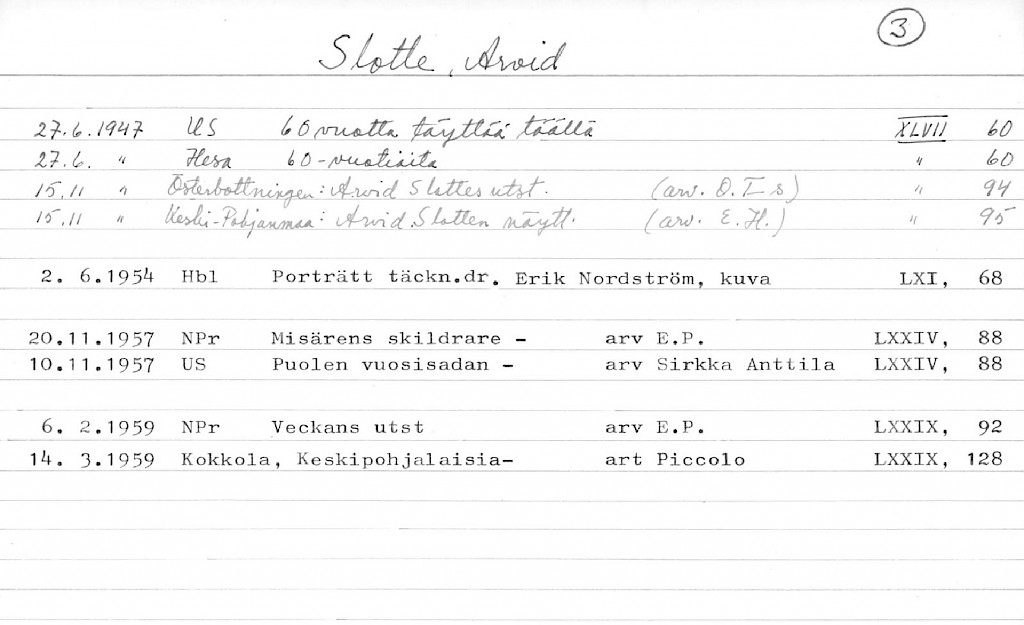 3
Slotte, Arvid
27.6.1947 US 60 vuotta täyttää täällä XLVII 60
27.6. " Hesa 60-vuotiaita " 60
15.11 " Österbottningen: Arvid Slottes utst. (arv. O. I-s) " 94
15.11 " Keski-Pohjanmaa: Arvid Slotten näytt. (arv. E.H.) " 95
2. 6.1954 Hbl Porträtt täckn.dr. Erik Nordström, kuva LXI, 68
20.11.1957 NPr Misärens skildrare - arv E.P. LXXIV, 88
10.11.1957 US Puolen vuosisadan - arv Sirkka Anttila LXXIV, 88
6. 2.1959 NPr Veckans utst arv E.P. LXXIX, 92
14. 3.1959 Kokkola, Keskipohjalaisia- art Piccolo LXXIX, 128